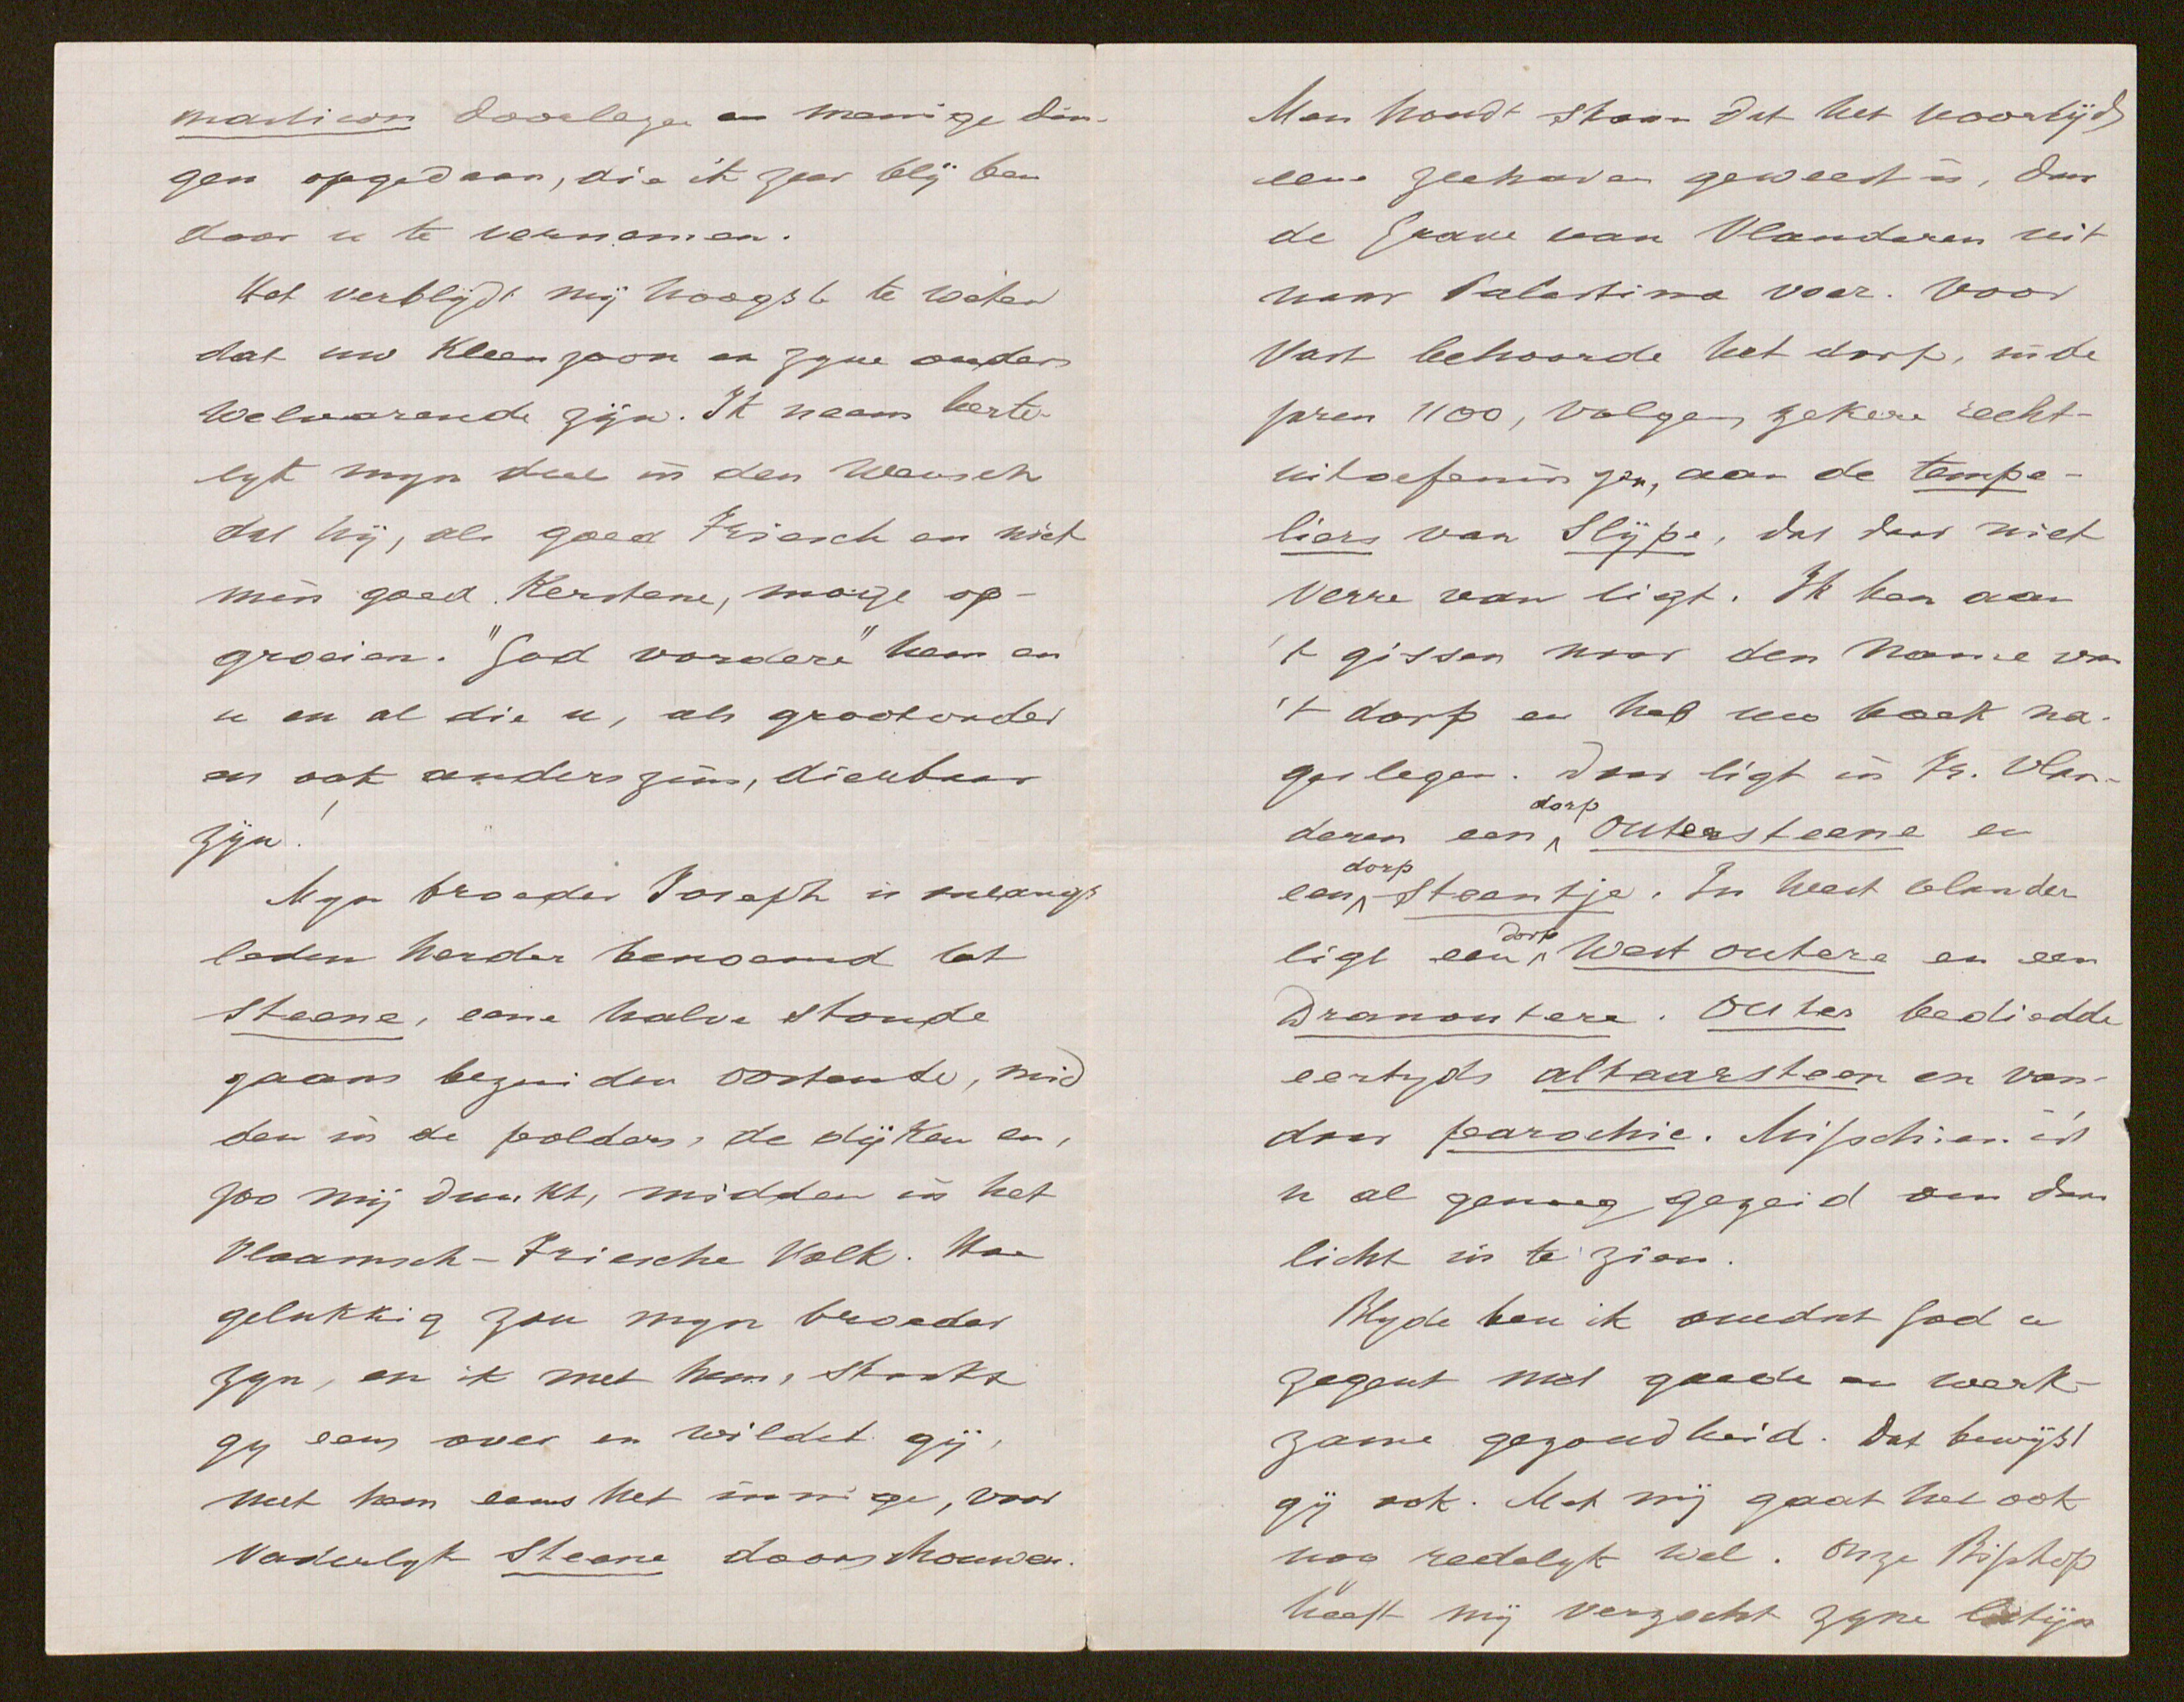 masticon doorlezen en menige din-
gen opgedaan, die ik zeer blij ben
door u te vernemen.
Het verblijdt mij hoogst te weten
dat uw Kleenzoon en zyne ouders
welvarende zijn. Ik neem herte-
lyk myn deel in den Wensch
dat hij, als goed Friesch en niet
min goed Kerstene, moge op-
groeien. "God vordere" hem en
u en al die u, als grootvader
en ook anderszins, dierbaar
zijn!
Myn broeder Joseph is onlangs
leden herder benoemd tot
Steene, eene halve stonde
gaans bezuiden Oostende, mid
den in de polders, de dijken en,
zoo mij dunkt, midden in het
Vlaamsch-Friesche Volk. Hoe
gelukkig zou myn broeder
zyn, en ik met hem, staakt
gy eens over en wildet gij,
met hem eens het innige, voor
vaderlyk Steene doorschouwen.
Men houdt staan dat het voortijds
eene zeehaven geweest is, daar
de Grave van Vlanderen uit
naar Palestina voer. Voor
vast behoorde het dorp, in de
jaren 1100, volgens zekere recht-
uitoefeningen, aan de tempe-
liers van Slijpe, dat daar niet
verre van ligt. Ik ben aan
't gissen naar den Name van
't dorp en heb uw boek na-
geslegen. Daar ligt in Fr. Vlan-
deren een dorp Outersteene en
een dorp Steentje. In West Vlander
ligt een dorp West outere en een
Dranoutere. Outer bediedde
eertyds altaarsteen en van-
daar parochie. Misschien is 't
u al genoeg gezeid om daar
licht in te zien.
Blyde ben ik omdat God u
zegent met goede en werk-
zame gezondheid. Dat bewijst
gij ook. Met mij gaat het ook
nog redelyk wel. Onze Bisschop
heeft mij verzocht zyne latijn